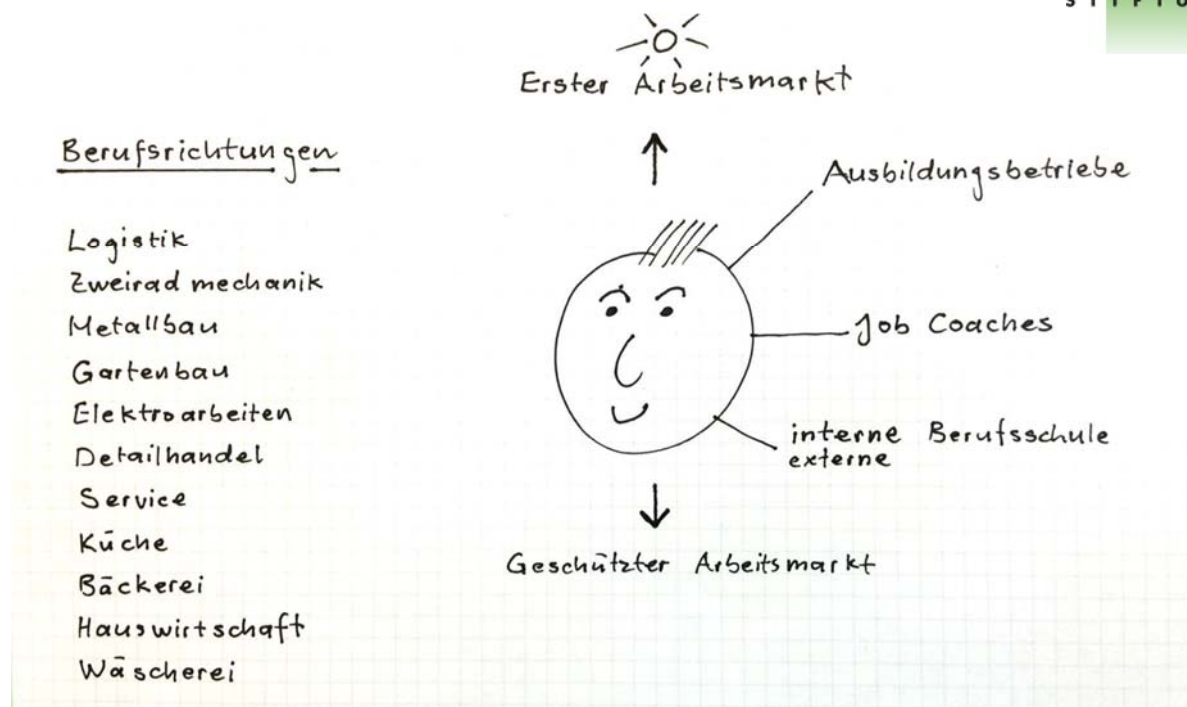 Erster Arbeitsmarkt
Berufsrichtungen
Logistik
Zweiradmechanik
Metallbau
Gartenbau
Elektroarbeiten
Detailhandel
Service
Küche
Bäckerei
Hauswirtschaft
Wäscherei
Ausbildungsbetriebe
Job Coaches
interne Berufsschule
externe
Geschützter Arbeitsmarkt